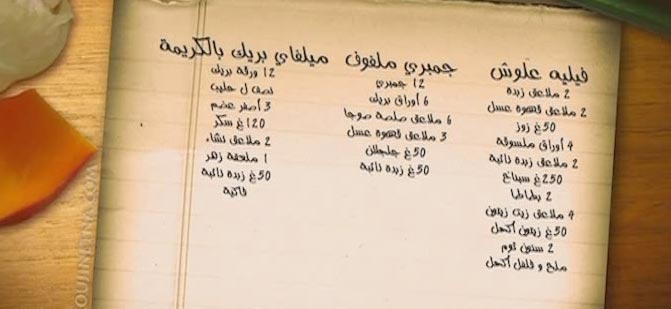 فيليه علوش
2 ملاعق زبدة
2 ملاعق قهوة عسل
50غ زوز
4 أوراق ملسوقة
2 ملاعق زبدة ذائبة
250غ سبناخ
2 بطاطا
4 ملاعق زيت زيتون
50غ زيتون أكحل
2 سنون ثوم
ملح و فلفل أكحل
جمبري ملفوف
12 جمبري
6 أوراق بريك
6 ملاعق صلصة صوجا
3 ملاعق قهوة عسل
50غ جلجلان
50غ زبدة ذائبة
ميلفاي بريك بالكريمة
12 ورقة بريك
نصف ل حليب
3 أصفر عضم
120غ سكر
2 ملاعق نشاء
1 ملعقة زهر
50غ زبدة ذائبة
فاكية
OUJINETNA.COM